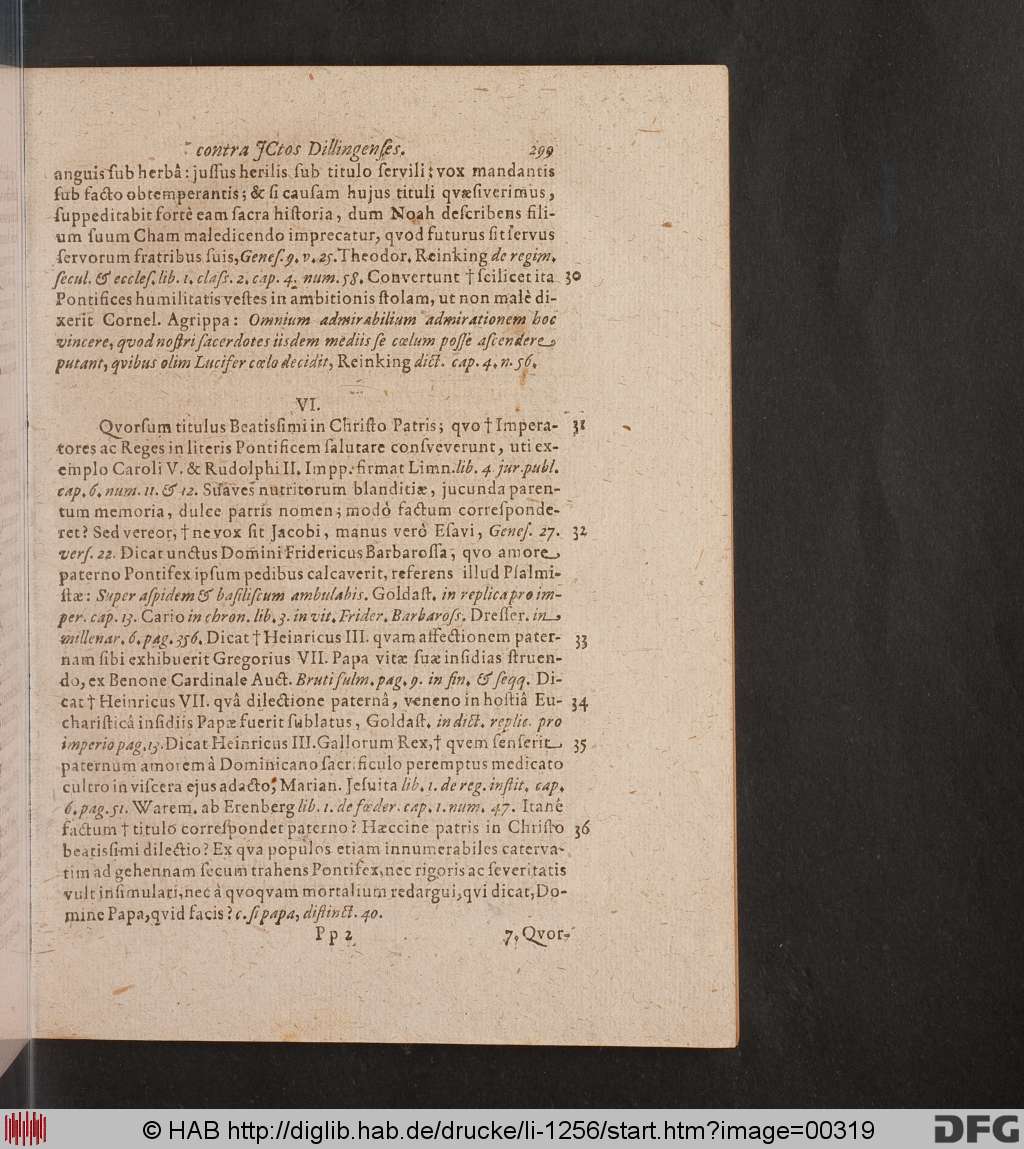 contra JCtos Dillingenſes. 299
anguis ſub herbâ: juſſus herilis ſub titulo ſervili: vox mandantis
ſub facto obtemperantis; & ſi cauſam hujus tituli qvæſiverimus,
ſuppeditabit fortè eam ſacra hiſtoria, dum Noah deſcribens fili-
um ſuum Cham maledicendo imprecatur, qvod futurus ſit ſervus
ſervorum fratribus ſuis, Geneſ. 9. v. 25. Theodor. Reinking de regim.
ſecul. & eccleſ. lib. 1. claſſ. 2. cap. 4. num. 58. Convertunt † ſcilicet ita 30
Pontifices humilitatis veſtes in ambitionis ſtolam, ut non malè di-
xerit Cornel. Agrippa: Omnium admirabilium admirationem hoc
vincere, quod noſtri ſacerdotes iisdem mediis ſe cœlum poſſe aſcendere
putant, qvibus olim Lucifer cœlo decidit, Reinking dict. cap. 4. n. 56.
VI.
Qvorſum titulus Beatisſimi in Chriſto Patris; qvo † Impera- 31
tores ac Reges in literis Pontificem ſalutare conſveverunt, uti ex-
emplo Caroli V. & Rudolphi II. Impp. firmat Limn. lib. 4. jur. publ.
cap. 6. num. 11. & 12. Suaves nutritorum blanditiæ, jucunda paren-
tum memoria, dulce patris nomen; modò factum correſponde-
ret? Sed vereor, † ne vox ſit Jacobi, manus verò Eſavi, Geneſ. 27. 32
verſ. 22. Dicat unctus Domini Fridericus Barbaroſſa, qvo amore
paterno Pontifex ipſum pedibus calcaverit, referens illud Pſalmi-
ſtæ: Super aſpidem & baſiliſcum ambulabis. Goldaſt. in replica pro im-
per. cap. 13. Cario in chron. lib. 3. in vit. Frider. Barbaroſſ. Dreſſer. in
millenar. 6. pag. 356. Dicat † Heinricus III. qvam affectionem pater- 33
nam ſibi exhibuerit Gregorius VII. Papa vitæ ſuæ inſidias ſtruen-
do, ex Benone Cardinale Auct. Bruti fulm. pag. 9. in fin. & ſeqq. Di-
cat † Heinricus VII. qvâ dilectione paternâ, veneno in hoſtiâ Eu- 34
chariſticâ inſidiis Papæ fuerit ſublatus, Goldaſt. in dict. replic. pro
imperio pag. 13. Dicat Heinricus III. Gallorum Rex, † qvem ſenſerit 35
paternum amorem à Dominicano ſacrificulo peremptus medicato
cultro in viſcera ejus adacto, Marian. Jeſuita lib. 1. de reg. inſtit. cap.
6. pag. 51. Warem. ab Erenberg lib. 1. de fœder. cap. 1. num. 47. Itanè
factum † titulo correſpondet paterno? Hæccine patris in Chriſto 36
beatisſimi dilectio? Ex qva populos etiam innumerabiles caterva-
tim ad gehennam ſecum trahens Pontifex, nec rigoris ac ſeveritatis
vult inſimulari, nec à qvoqvam mortalium redargui, qvi dicat, Do-
mine Papa, qvid facis? c. ſi papa, diſtinct. 40.
Pp 2 7. Qvor-
© HAB http://diglib.hab.de/drucke/li-1256/start.htm?image=00319
DFG